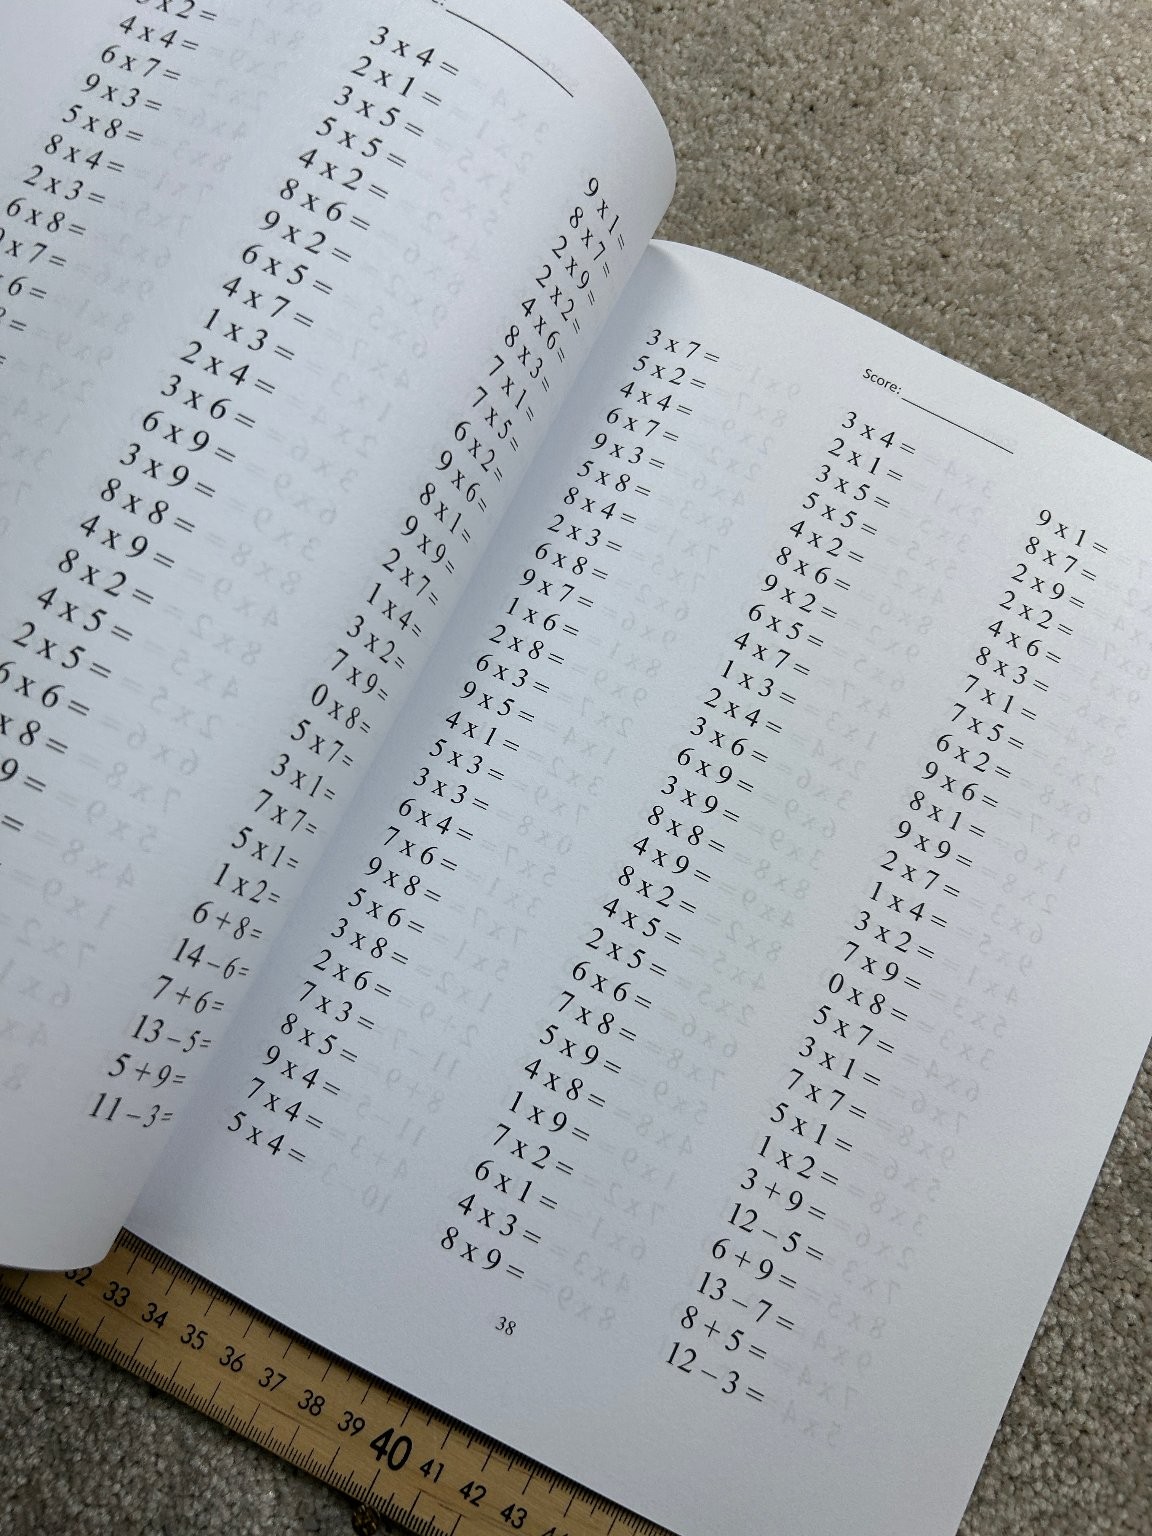 x2=
4x4=
6x7=
9x3=
5x8=
8x4=
2x3=
6x8=
x7=
6=
=
6x6=
x8=
9=
=
3 x 4 =
2 x 1 =
3 x 5 =
5 x 5 =
4 x 2 =
8 x 6 =
9 x 2 =
6 x 5 =
4 x 7 =
1 x 3 =
2 x 4 =
3 x 6 =
6 x 9 =
3 x 9 =
8 x 8 =
4 x 9 =
8 x 2 =
4 x 5 =
2 x 5 =
9 x 1 =
8 x 7 =
2 x 9 =
2 x 2 =
4 x 6 =
8 x 3 =
7 x 1 =
7 x 5 =
6 x 2 =
9 x 6 =
8 x 1 =
9 x 9 =
2 x 7 =
1 x 4 =
3 x 2 =
7 x 9 =
0 x 8 =
5 x 7 =
3 x 1 =
7 x 7 =
5 x 1 =
1 x 2 =
6 + 8 =
14 – 6 =
7 + 6 =
13 – 5 =
5 + 9 =
11 – 3 =
Score:
3 x 7 =
5 x 2 =
4 x 4 =
6 x 7 =
9 x 3 =
5 x 8 =
8 x 4 =
2 x 3 =
6 x 8 =
9 x 7 =
1 x 6 =
2 x 8 =
6 x 3 =
9 x 5 =
4 x 1 =
5 x 3 =
3 x 3 =
6 x 4 =
7 x 6 =
9 x 8 =
5 x 6 =
3 x 8 =
2 x 6 =
7 x 3 =
8 x 5 =
9 x 4 =
7 x 4 =
5 x 4 =
3 x 4 =
2 x 1 =
3 x 5 =
5 x 5 =
4 x 2 =
8 x 6 =
9 x 2 =
6 x 5 =
4 x 7 =
1 x 3 =
2 x 4 =
3 x 6 =
6 x 9 =
3 x 9 =
8 x 8 =
4 x 9 =
8 x 2 =
4 x 5 =
2 x 5 =
6 x 6 =
7 x 8 =
5 x 9 =
4 x 8 =
1 x 9 =
7 x 2 =
6 x 1 =
4 x 3 =
8 x 9 =
9 x 1 =
8 x 7 =
2 x 9 =
2 x 2 =
4 x 6 =
8 x 3 =
7 x 1 =
7 x 5 =
6 x 2 =
9 x 6 =
8 x 1 =
9 x 9 =
2 x 7 =
1 x 4 =
3 x 2 =
7 x 9 =
0 x 8 =
5 x 7 =
3 x 1 =
7 x 7 =
5 x 1 =
1 x 2 =
3 + 9 =
12 – 5 =
6 + 9 =
13 – 7 =
8 + 5 =
12 – 3 =
38
32 33 34 35 36 37 38 39 40 41 42 43